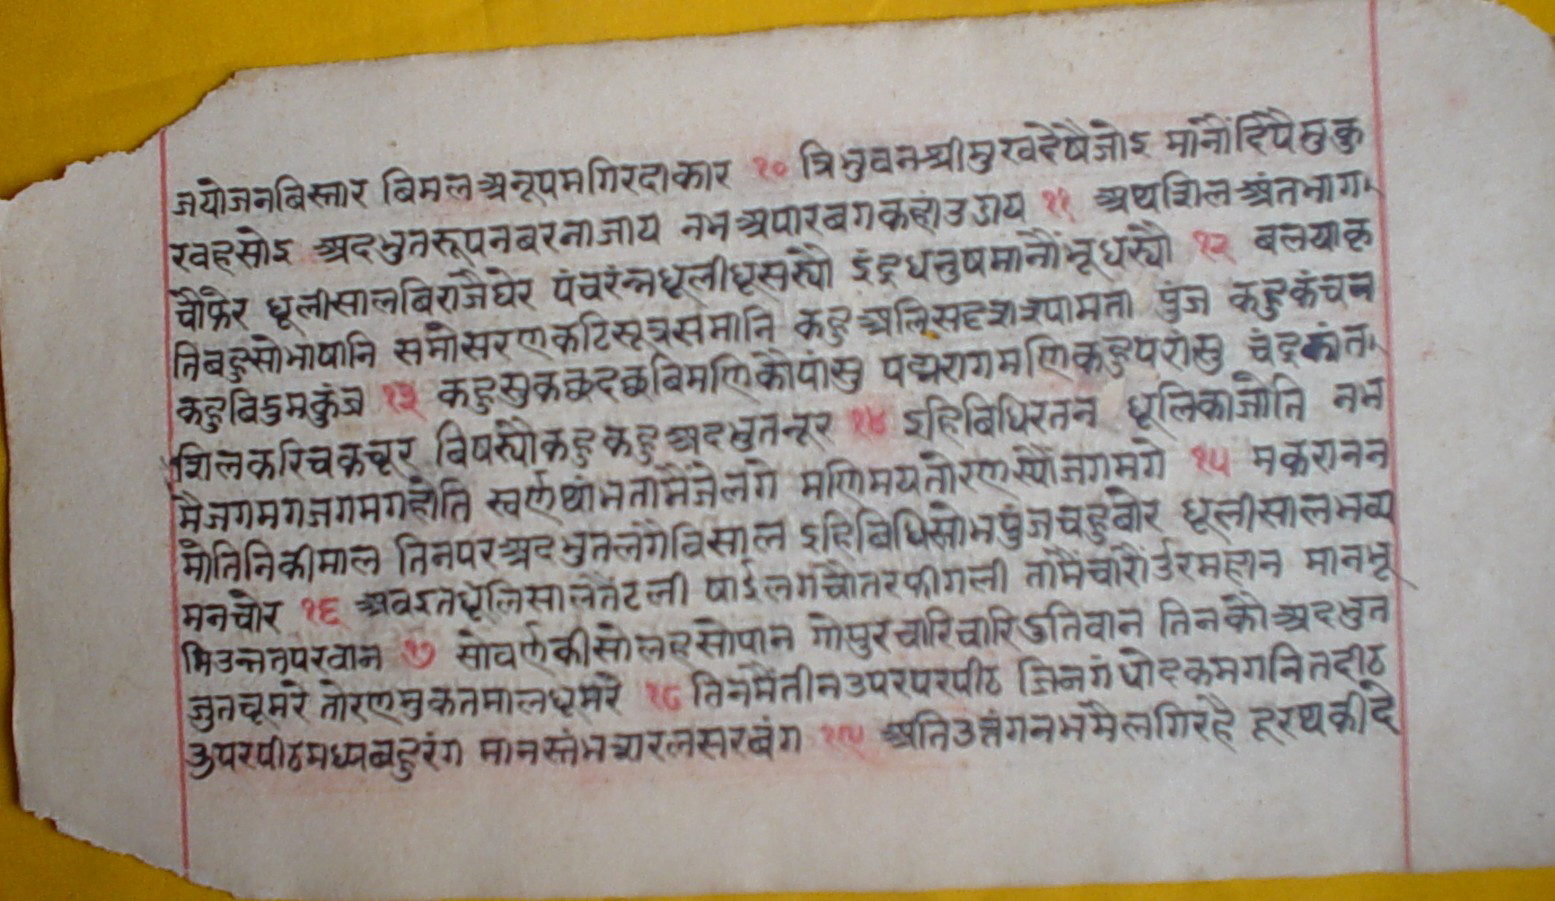 जयोजनबिस्तार बिमल अनूपमगिरदाकार १० त्रिभुवनश्रीमुखदेषैजोइ मानौंदिपैमुकु
रवहसोइ अदभुतरूपनबरनाजाय नभअपारबगकहांउडाय ११ अथशिलअंतभाग
चौफेर धूलीसालबिराजैघेर पंचरंन्नधूलीधूसस्यौ इंद्रधनुषमानौंभूधस्यौ १२ बलयाक
तिबहुसोभाषानि समोसरणकटिसूत्रसमानि कहुअलिसदृशश्यामता पुंज कहुकंचन
कहुबिडुमकुंज १३ कहुसुकछदछबिमणिकौपांसु पद्मरागमणिकहुपरांसु चंद्रकांत
शिलकरिचकचूर बिषस्यौकहुकहुअदभुतनूर १४ इहिबिधिरतन धूलिकाजोति नभ
मैजगमगजगमगहोति स्वर्णथांभतामैंजेलगे मणिमयतोरणस्यौंजगमगे १५ मकरानन
मोतिनिकीमाल तिनपरअदभुतलगैविसाल इहिबिधिसोभपुंजचहुवोर धूलीसालभव्य
मनचोर १६ अवइतधूलिसालतैटली षाईलगचौतरफीगली तामैंचारौंउरमहान मानभू
मिउन्नतपरवान १७ सोवर्णकीसोलहसोपान गोपुरचारिचारिउतिवान तिनकौअदभुत
जुतचूमरे तोरणमुकतमालधूमरे १८ तिनमैतीनउपरपरपीठ जिनगंधोदकमगनितदीठ
उपरपीठमध्यबहुरंग मानस्तंभशरलसरबंग १९ अतिउत्तंगनभमैलगिरहै हरथकीदे